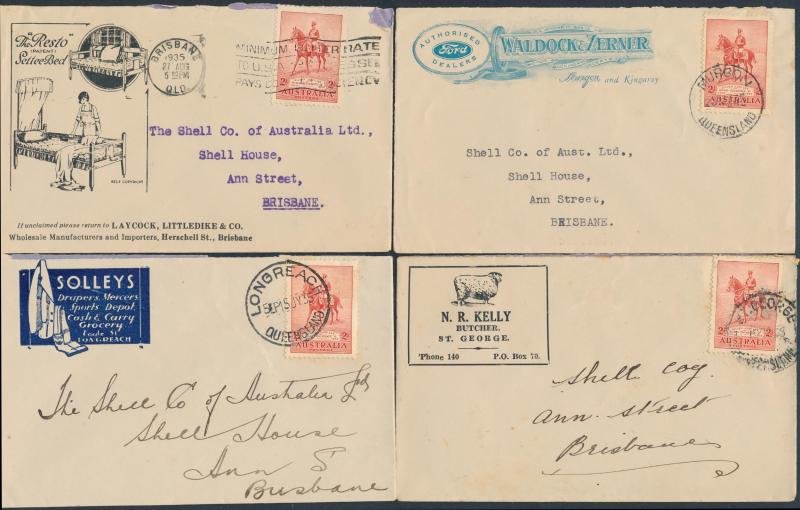 The "Resto"
(PATENT)
Settee-Bed
BRISBANE
1935
27 AUG
QLD.
2D 2D
AUSTRALIA
The Shell Co. of Australia Ltd.,
Shell House,
Ann Street,
BRISBANE.
If unclaimed please return to LAYCOCK, LITTLEDIKE & CO.
Wholesale Manufacturers and Importers, Herschell St., Brisbane
AUTHORISED
Ford
DEALERS
WALDOCK & ZERNER
Murgon and Kingaroy
MURGON
QUEENSLAND
AUSTRALIA
Shell Co. of Aust. Ltd.,
Shell House,
Ann Street,
BRISBANE.
SOLLEYS
Drapers, Mercers
Sports Depot,
Cash & Carry
Grocery
LONGREACH
LONGREACH
QUEENSLAND
AUSTRALIA
The Shell Co of Australia Ltd
Shell House
Ann St
Brisbane
N. R. KELLY
BUTCHER,
ST. GEORGE.
'Phone 140 P.O. Box 70.
AUSTRALIA
Shell Coy.
Ann Street
Brisbane